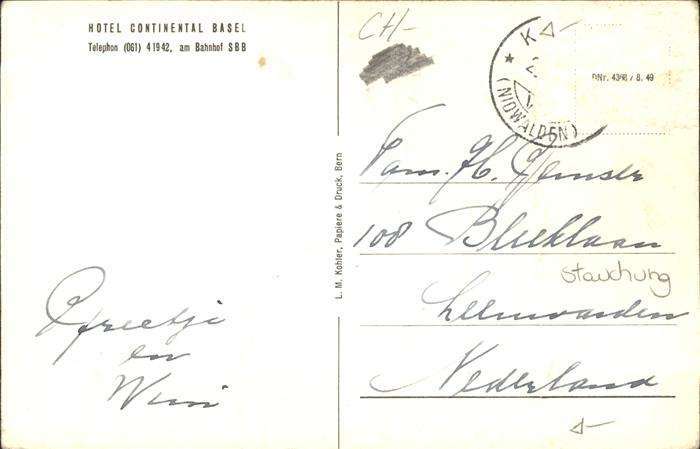 HOTEL CONTINENTAL BASEL
Telephon (061) 4 19 42, am Bahnhof SBB
L. M. Kohler, Papiere & Druck, Bern
en
Wim
CH-
* K
(NIDWALDEN)
DNr. 4398 / 8. 49
Fam. H.
108 Bleeklaan
stauchung
Leeuwarden
Nederland